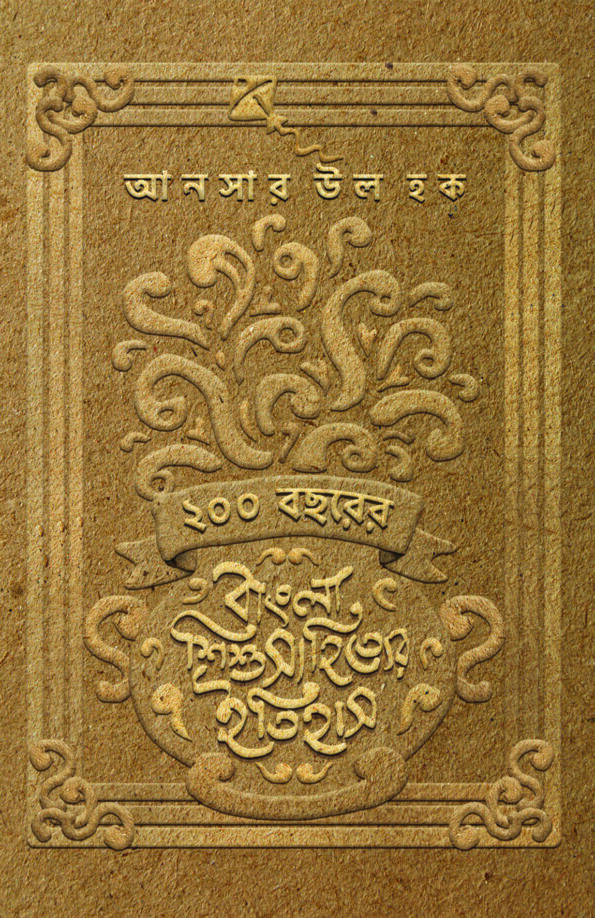 আনসার উল হক
২০০ বছরের
বাংলা
শিশুসাহিত্যের
ইতিহাস